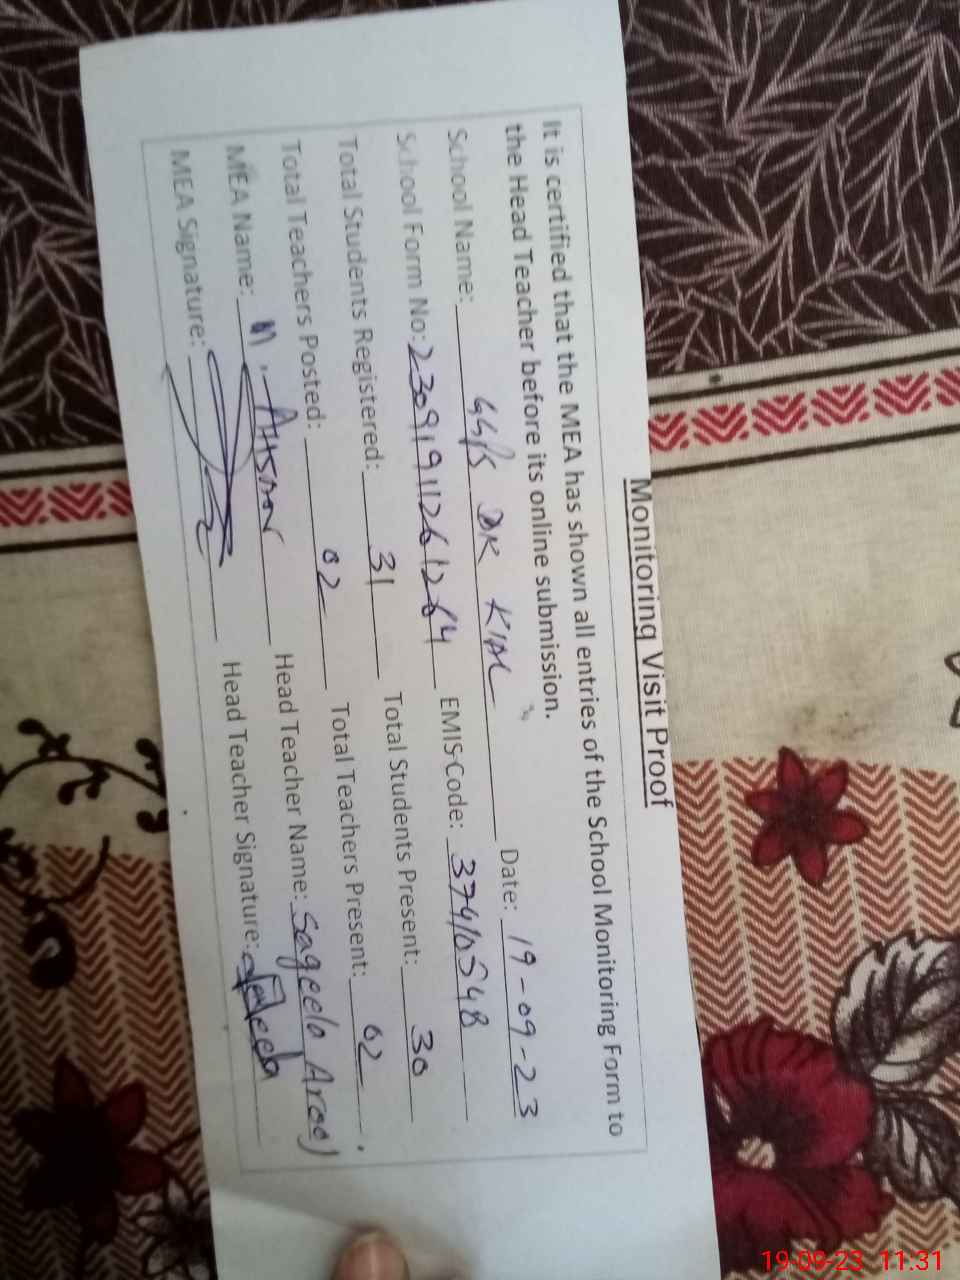 Monitoring Visit Proof
It is certified that the MEA has shown all entries of the School Monitoring Form to
the Head Teacher before its online submission.
School Name: DK Date: 19-09-23
School Form No: 23091911261264 EMIS Code: 37410548
Total Students Registered: 31 Total Students Present: 30
Total Teachers Posted: 02 Total Teachers Present: 02
MEA Name: M. Ahsan Head Teacher Name: Sageela
MEA Signature: Head Teacher Signature:
19-09-23 11:31